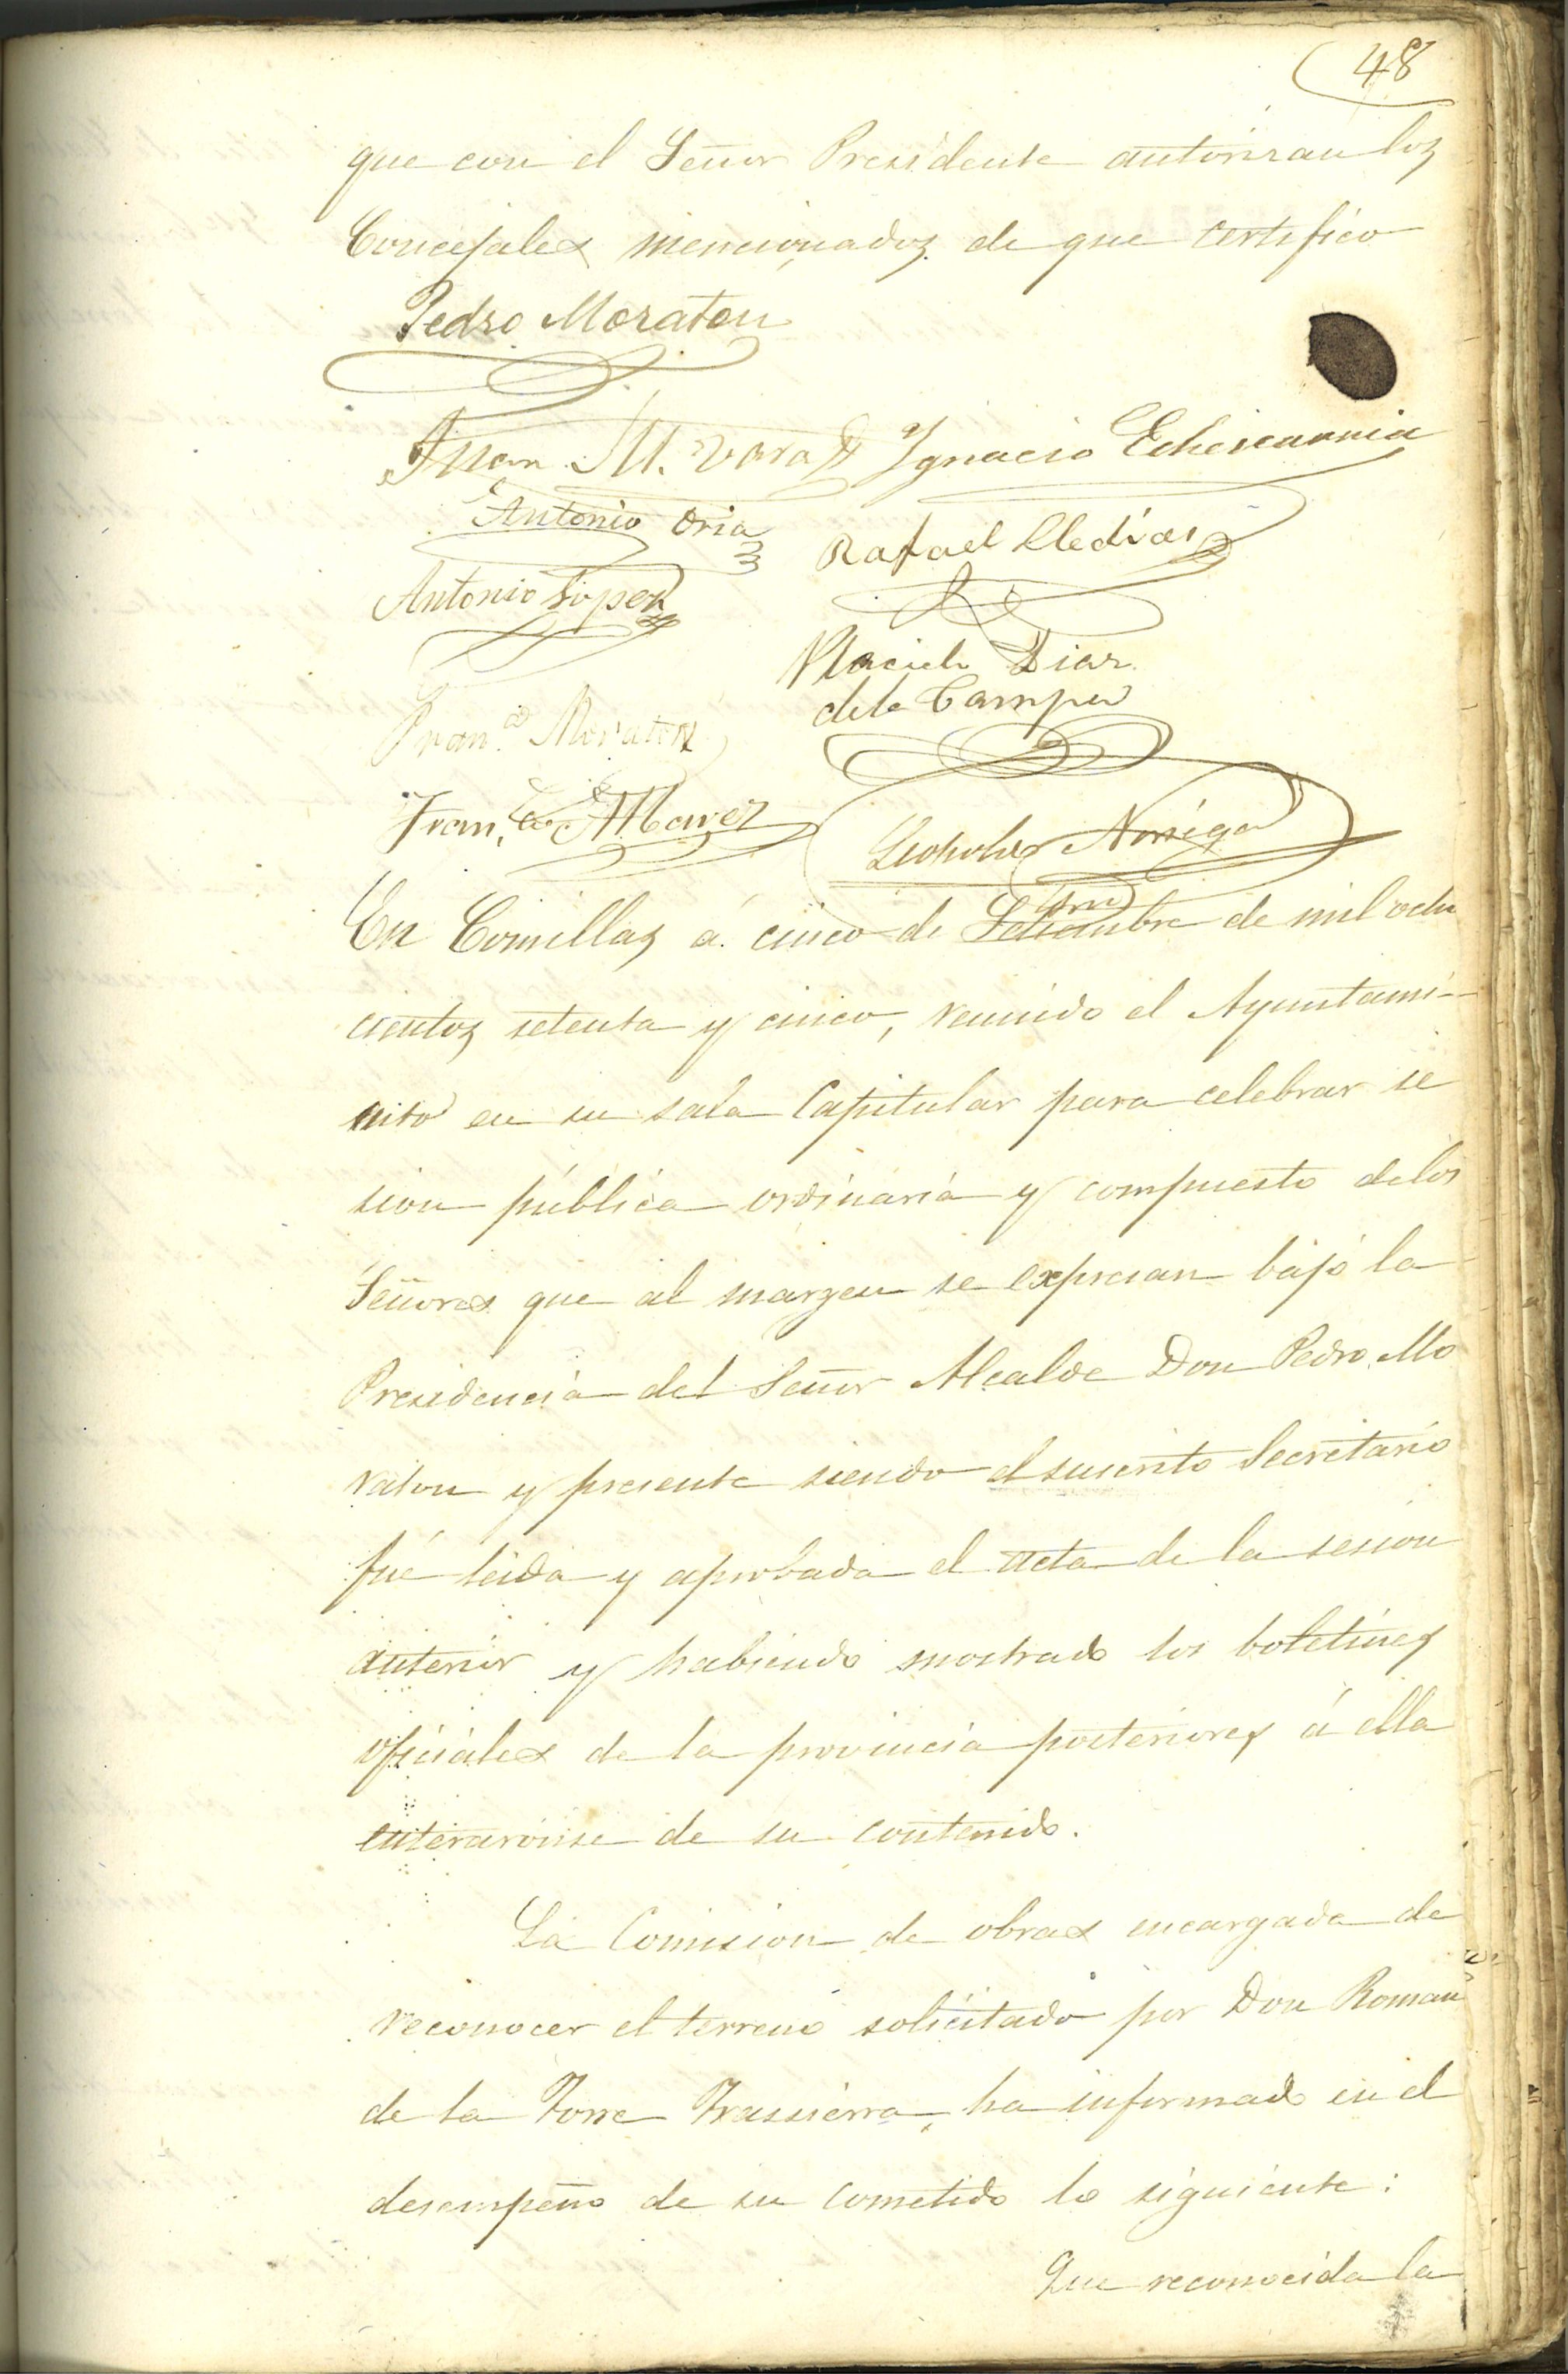 48
que con el Señor Presidente autorizan los
Concejales mencionados de que certifico
Pedro Moraton
Juan M. Vara Ygnacio Echevarria
Antonio Oria
Rafael Lledias
Antonio Lopez
Placido Diaz
de la Campa
Fran.co Moraton
Fran.co Alvarez
Leopoldo Noriega
Srio
En Comillas á cinco de Setiembre de mil ocho
cientos setenta y cinco, reunido el Ayuntami-
ento en su sala Capitular para celebrar se
sion pública ordinária y compuesto de los
Señores que al margen se expresan bajo la
Presidencia del Señor Alcalde Don Pedro Mo
raton y presente siendo el suscrito Secretario
fué leida y aprobada el acta de la sesion
anterior y habiendo mostrado los boletines
oficiales de la provincia posteriores á ella
enteraronse de su contenido.
La Comision de obras encargada de
reconocer el terreno solicitado por Don Roman
de la Torre Trassierra, ha informado en el
desempeño de su cometido lo siguiente:
Que reconocida la